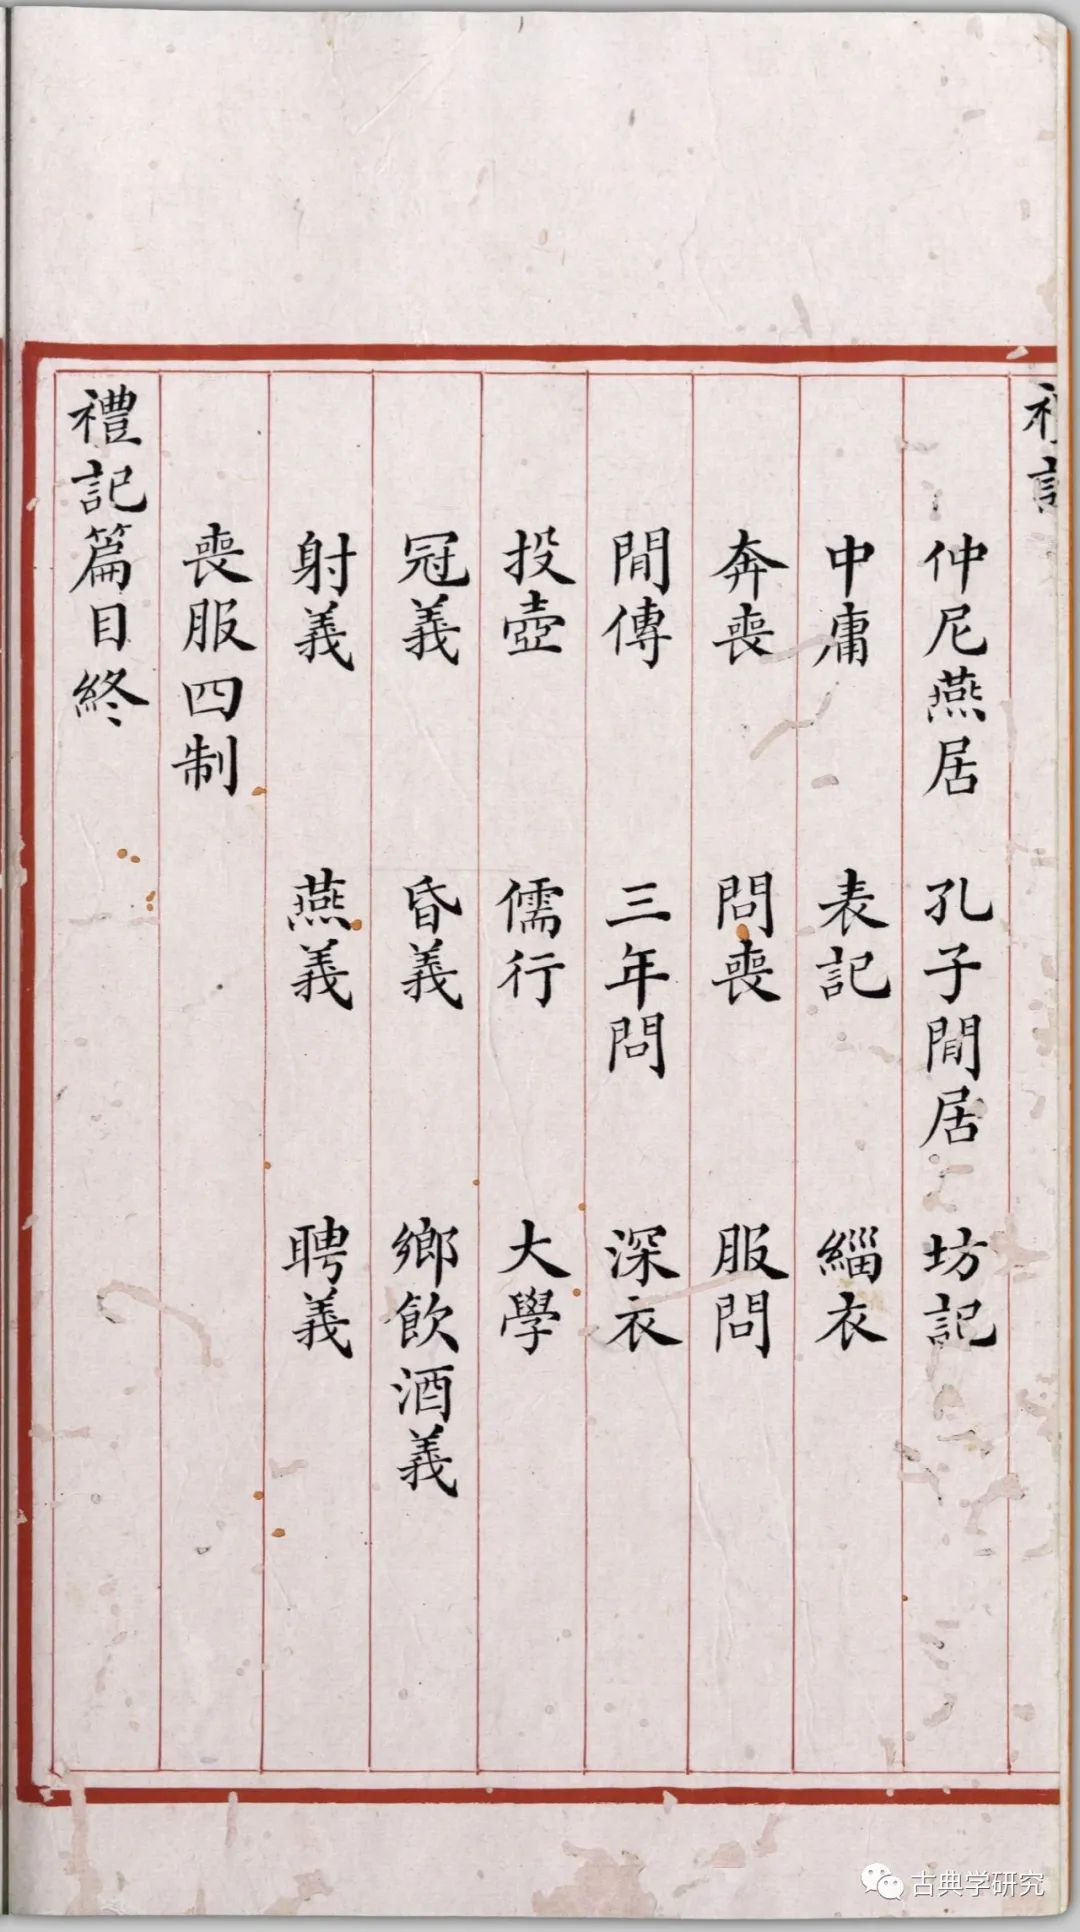 禮記
仲尼燕居 孔子閒居 坊記
中庸 表記 緇衣
奔喪 問喪 服問
間傳 三年問 深衣
投壺 儒行 大學
冠義 昏義 鄉飲酒義
射義 燕義 聘義
喪服四制
禮記篇目終
古典学研究